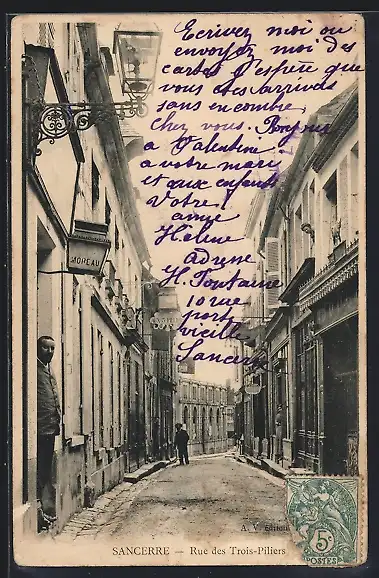 Ecrivez moi ou
envoyez moi des
cartes J'espère que
vous êtes arrivés
sans encombre
chez vous. Bonjour
à Valentine
a votre mari
et aux enfants
Votre
amie
Hélène
H. Fontaine
10 rue
porte
vieille
Sancerre
MOREAU
A. V. édit.
SANCERRE — Rue des Trois-Piliers
5c
POSTES